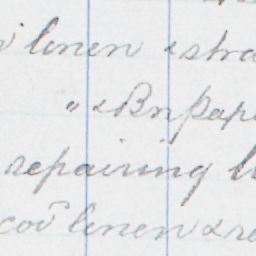 linen & stra
" & Bn pap
repairing l
cov linen & re